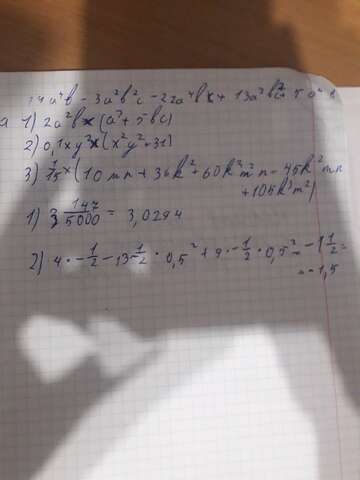 14a⁴b - 3a²b²c - 22a⁴b + 13a²b²c + 5a⁴b
1) 2a²b × (a² + 5bc)
2) 0,1xy³ × (x²y² + 31)
3) 1/15 × (10mn + 36k² + 60k³m²n - 45k²mn
+ 105k³m²)
1) 3 147/5000 = 3,0294
2) 4 · - 1/2 - 13 - 1/2 · 0,5² + 9 · - 1/2 · 0,5² = - 1 1/2 =
= - 1,5